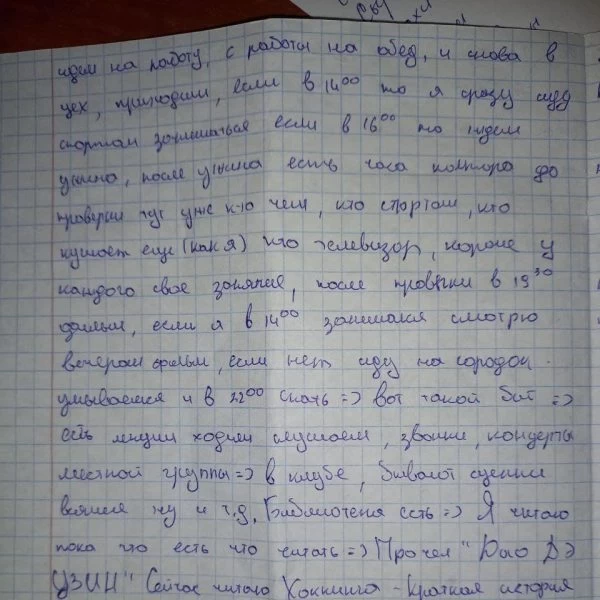 идем на работу, с работы на обед, и снова в
цех, приходим, если в 14⁰⁰ то я сразу иду
спортом заниматься если в 16⁰⁰ то ждем
ужина, после ужина есть часа полтора до
проверки тут уже кто чем, кто спортом, кто
кушает еще (как я) кто телевизор, короче у
каждого свое занятие, после проверки в 19³⁰
дальш, если я в 14⁰⁰ занимался смотрю
вечером фильм, если нет иду на городок.
умываемся и в 22⁰⁰ спать => вот такой быт =>
есть лекции ходим слушаем, звонки, концерты
местной группы => в клубе, бывают сценки
всякие ну и т.д, Библиотека есть => Я читаю
пока что есть что читать => Прочел "Дао Дэ
ЦЗИН" Сейчас читаю Хокинга - Краткая история